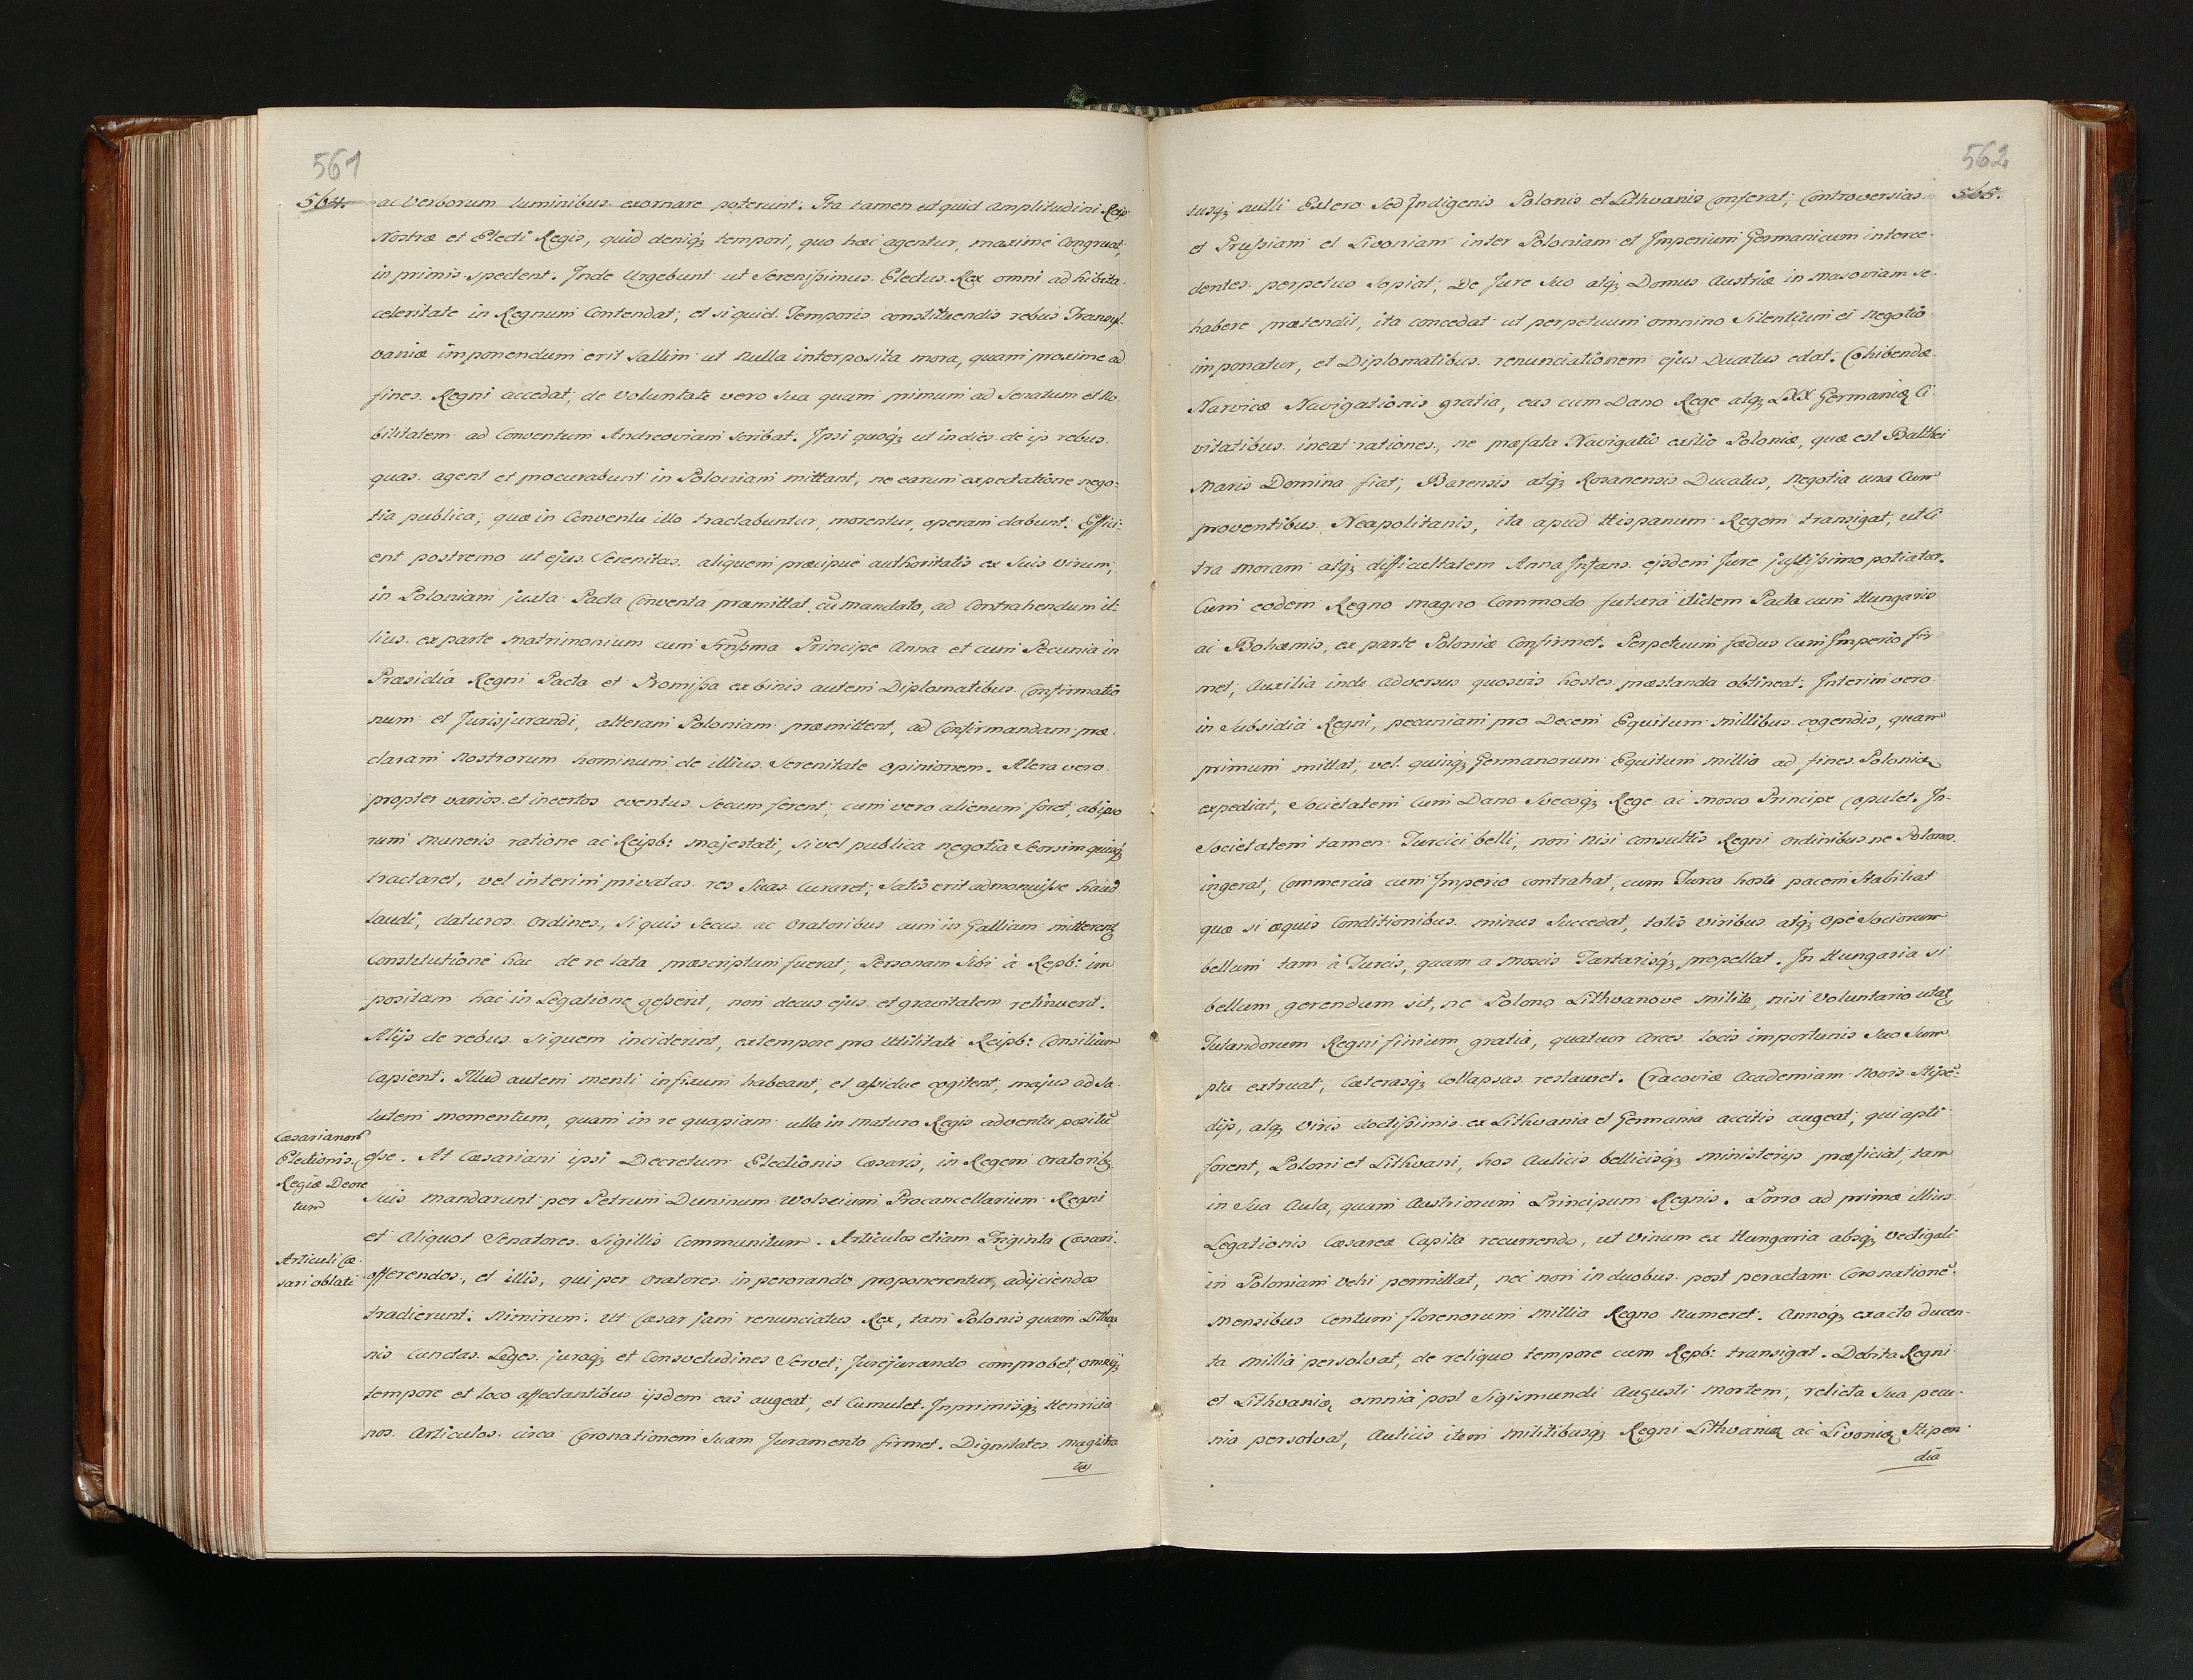 561
564.
ac verborum luminibus exornare poterunt. Ita tamen ut quid amplitudini Reip:
Nostræ et Electi Regis, quid deniq; tempori, quo hæc agentur, maxime congruat,
in primis spectent. Inde urgebunt ut Serenissimus Electus Rex omni adhibita
celeritate in Regnum contendat, et si quid Temporis constituendis rebus Transyl-
vaniæ imponendum erit saltim ut nulla interposita mora, quam proxime ad
fines Regni accedat, de voluntate vero sua quam primum ad Senatum et No-
bilitatem ad Conventum Andreoviam scribat. Ipsi quoq; ut indies de ijs rebus
quas agent et procurabunt in Poloniam mittant, ne earum expectatione nego-
tia publica, quæ in Conventu illo tractabuntur, morentur, operam dabunt. Effici-
ent postremo ut ejus Serenitas aliquem præcipuæ authoritatis ex suis virum,
in Poloniam juxta Pacta Conventa præmittat, cũ mandato, ad contrahendum il-
lius ex parte matrimonium cum Srñssma Principe Anna et cum Pecunia in
Præsidia Regni Pacta et Promissa ex binis autem Diplomatibus Confirmatio
num et Jurisjurandi, alteram Poloniam præmittent, ad Confirmandam præ-
claram Nostrorum hominum de illius Serenitate opinionem. Altera vero
propter varios et incertos eventus secum ferent; cum vero alienum foret, ab ipso
rum muneris ratione ac Reipb: majestati, si vel publica negotia seorsim quisq;
tractaret, vel interim privatas res suas curaret; satis erit admonuisse haud
laudi, daturos ordines, si quis secus ac oratoribus cum in Galliam mitterent
constitutione hac de re lata præscriptum fuerat, Personam sibi à Repb: im
positam hac in Legatione gesserit, non decus ejus et gravitatem retinuerit.
Alijs de rebus si quem inciderint, extempore pro utilitate Reipb: consilium
capient. Illud autem menti infixum habeant, et assidue cogitent, majus ad sa-
lutem momentum, quam in re quapiam ulla in maturo Regis adventu positũ
Cæsarianor
Electionis
Regiæ Decre
tum
esse. At Cæsariani ipsi Decretum Electionis Cæsaris, in Regem oratorib;
suis mandarunt per Petrum Duninum Wolscium Procancellarium Regni
et aliquot Senatores sigillis communitum. Articulos etiam Triginta Cæsari
Articuli Cæ-
sari oblati
offerendos, et illis, qui per oratores in perorando proponerentur, adijciendos
tradierunt. Nimirum. Ut Cæsar jam renunciatus Rex, tam Polonis quam Lithva
nis cunctas Leges juraq; et consvetudines servet, Jurejurando comprobet, omniq;
tempore et loco affectantibus ijsdem eas augeat, et cumulet. Inprimisq; Henricia
nos Articulos circa Coronationem suam Juramento firmet. Dignitates magistra
tus
562
565.
tusq; nulli Extero sed Indigenis Polonis et Lithvanis conferat, Controversias
et Prussiam et Livoniam inter Poloniam et Imperium Germanicum interce-
dentes perpetuo sopiat; De Jure suo atq; Domus Austriæ in Masoviam se
habere prætendit, ita concedat ut perpetuum omnino silentium ei negotio
imponatur, et Diplomatibus renunciationem ejus Ducatus edat. Cohibendæ
Narvicæ Navigationis gratia, eas cum Dano Rege atq; LXX Germaniæ Ci-
vitatibus ineat rationes, ne præfata Navigatio exilio Poloniæ, quæ est Balthei
Maris Domina fiat; Barensis atq; Rosanensis Ducatus, negotia una cum
proventibus Neapolitanis, ita apud Hispanum Regem transigat, ut ci
tra moram atq; difficultatem Anna Infans ejsdem Jure justissimo potiatur.
Cum eodem Regno magno commodo futura itidem Pacta cum Hungaris
ac Bohæmis, ex parte Poloniæ confirmet. Perpetuum fædus cum Imperio fir-
met, auxilia inde adversus quosvis hostes præstanda obtineat. Interim vero
in subsidia Regni, pecuniam pro Decem Equitum millibus cogendis, quam
primum mittat, vel quinq; Germanorum Equitum millia ad fines Poloniæ
expediat, Societatem cum Dano Svecoq; Rege ac Mosco Principe copulet. In-
Societatem tamen Turcici belli, non nisi consultis Regni ordinibus ne Polonos
ingerat, commercia cum Imperio contrahat, cum Turco hoste pacem stabiliat
quæ si æquis conditionibus minus succedat, totis viribus atq; ope sociorum
bellum tam à Turcis, quam a Moscis Tartarisq; propellat. In Hungaria si
bellum gerendum sit, ne Polono Lithvanove milite, nisi voluntario utat,
Tutandorum Regni finium gratia, quatuor arces locis importunis suo sum
ptu extruat, cæterasq; collapsas restauret. Cracoviæ Academiam novis stipẽ-
dijs, atq; viris doctissimis ex Lithvania et Germania accitis augeat; qui apti
forent, Poloni et Lithvani, hos aulicis bellicisq; ministerijs præficiat, tam
in sua Aula, quam Austriorum Principum Regnis. Porro ad prima illius
Legationis Cæsareæ capita recurrendo, ut vinum ex Hungaria absq; vectigali
in Poloniam vehi permittat, nec non in duobus post peractam Coronationẽ
mensibus centum florenorum millia Regno numeret. Annoq; exacto ducen-
ta millia persolvat, de reliquo tempore cum Repb: transigat. Debita Regni
et Lithvaniæ omnia post Sigismundi Augusti mortem, relicta sua pecu-
nia persolvat, aulicis item militibusq; Regni Lithvaniæ ac Livoniæ stipen
dia